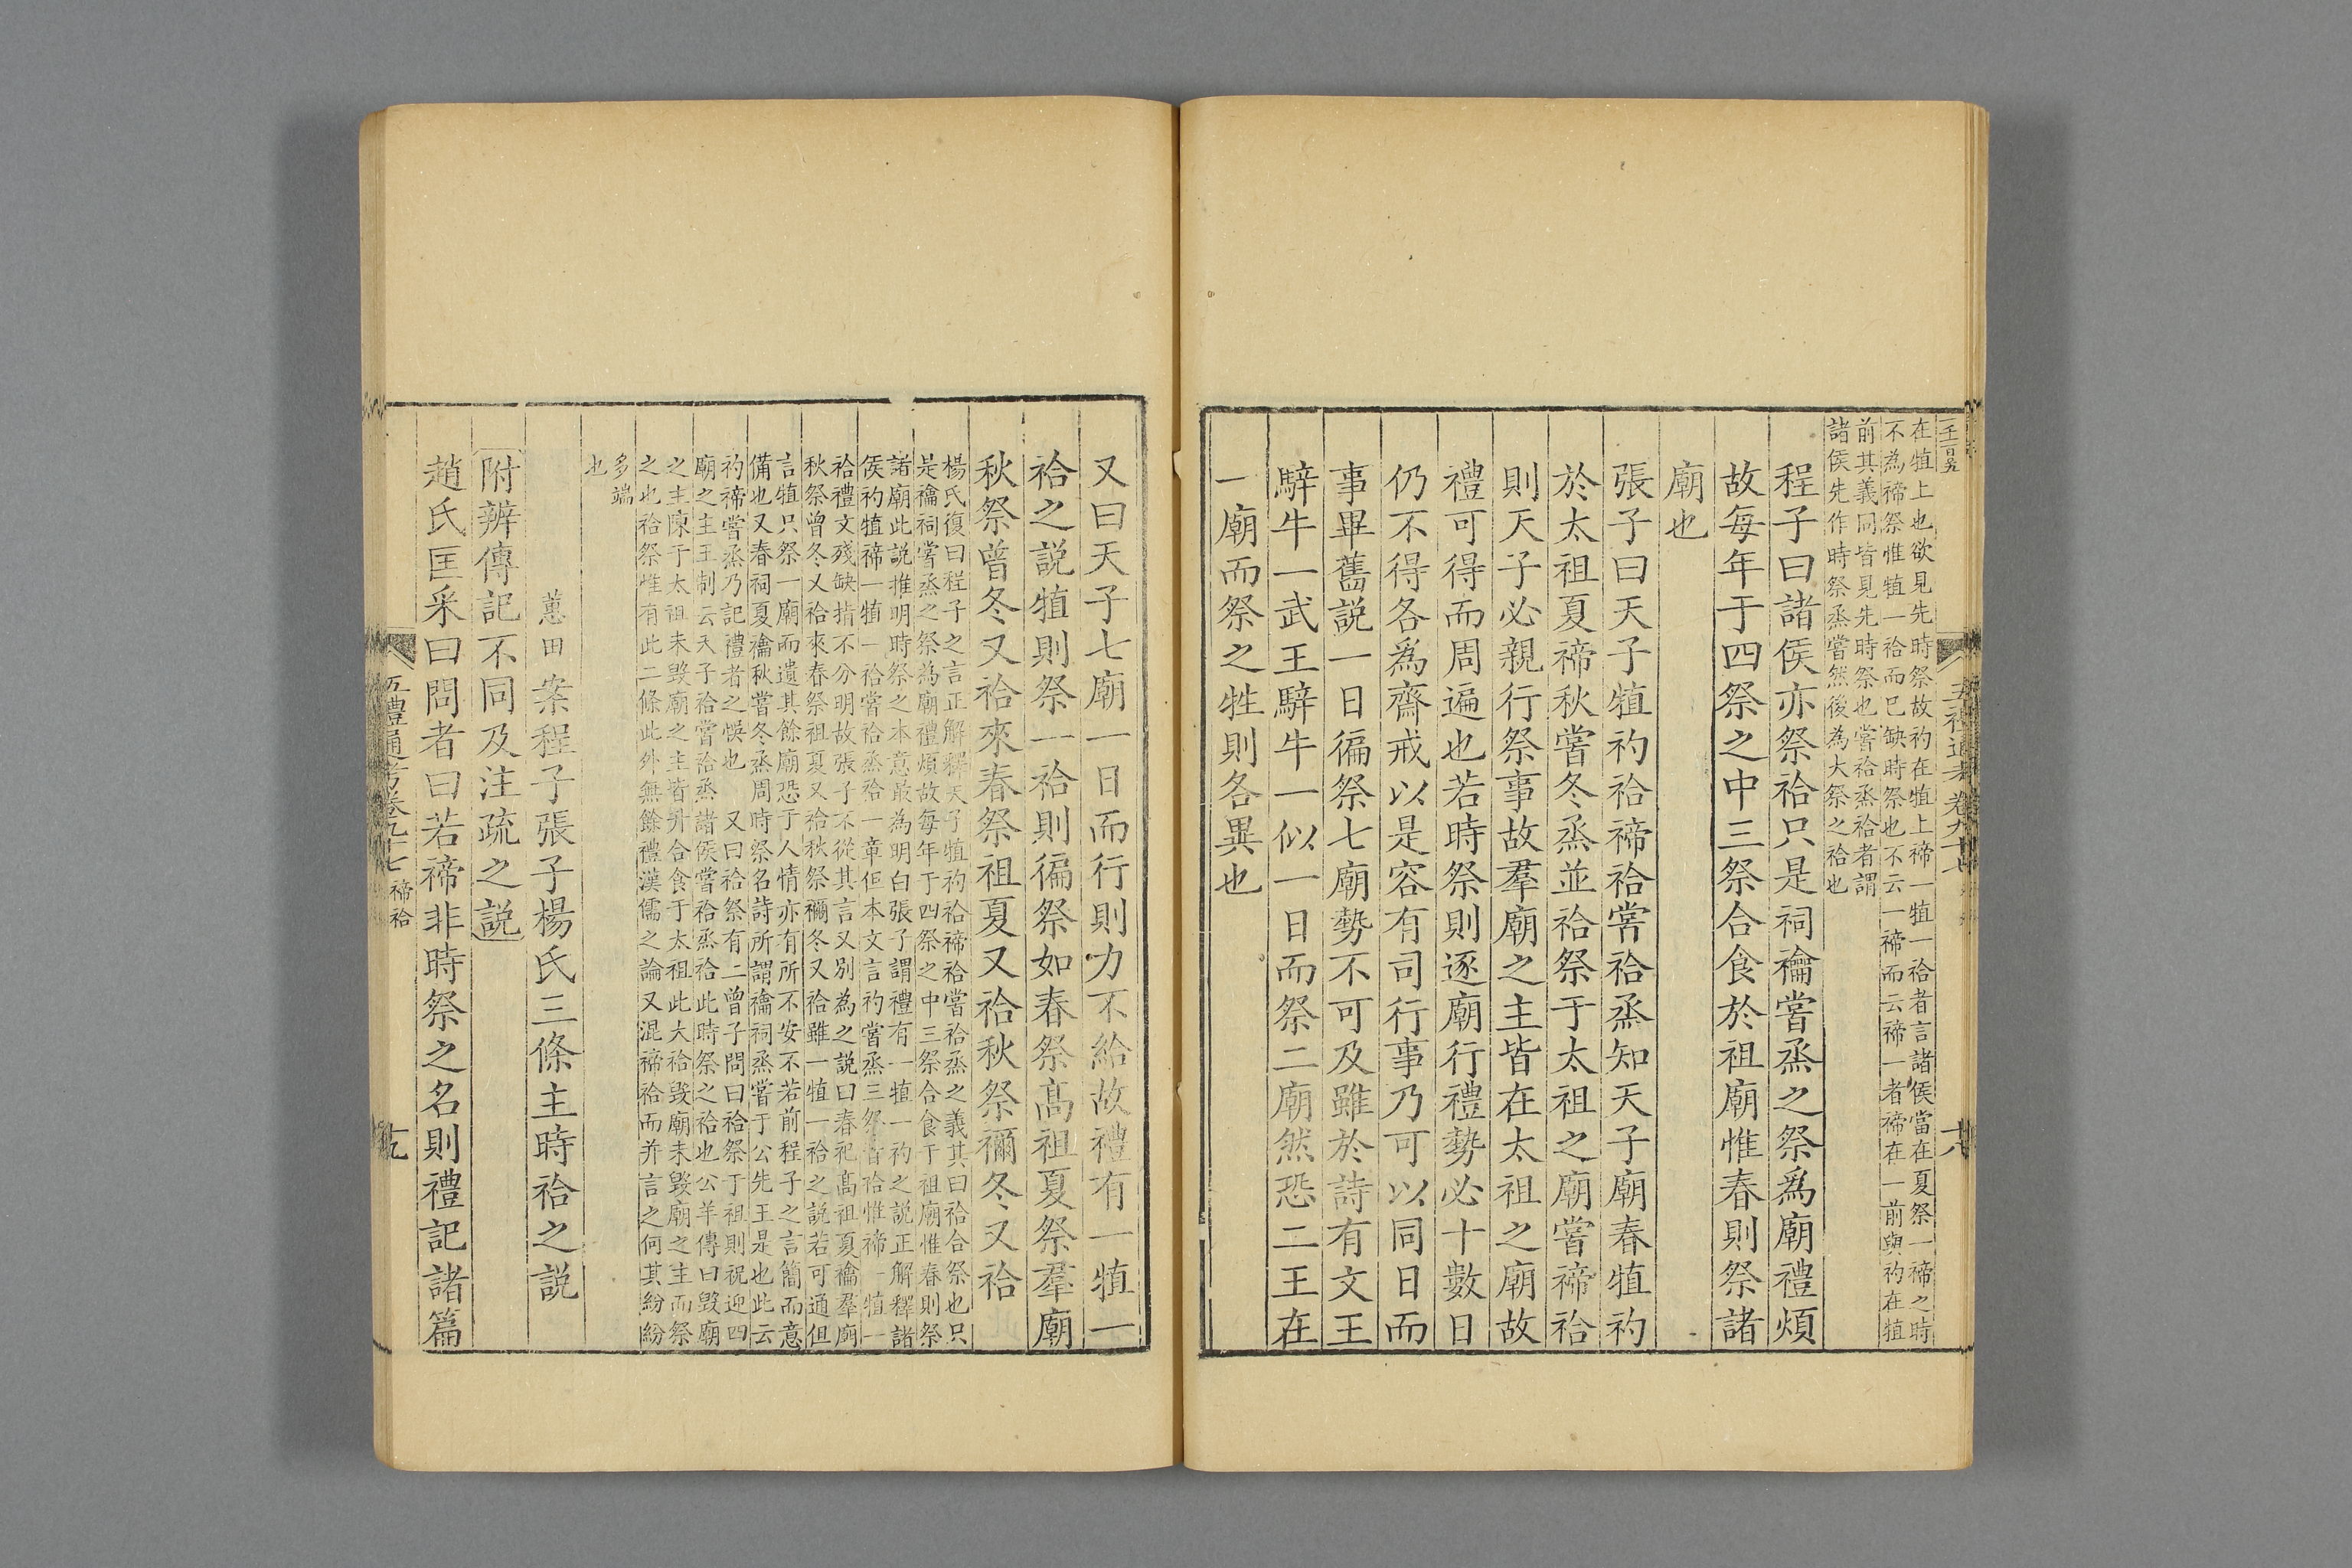 五禮通考卷九十七
在犆上也欲見先時祭故礿在犆上禘一犆一祫者言諸侯當在夏祭一禘之時
不為禘祭惟犆一祫而已缺時祭也不云一禘而云禘一者禘在一前與礿在犆
前其義同皆見先時祭也嘗祫烝祫者謂
諸侯先作時祭烝嘗然後為大祭之祫也
程子曰諸侯亦祭祫只是祠禴嘗烝之祭爲廟禮煩
故每年于四祭之中三祭合食於祖廟惟春則祭諸
廟也
張子曰天子犆礿祫禘祫嘗祫烝知天子廟春犆礿
於太祖夏禘秋嘗冬烝並祫祭于太祖之廟嘗禘祫
則天子必親行祭事故羣廟之主皆在太祖之廟故
禮可得而周遍也若時祭則逐廟行禮勢必十數日
仍不得各爲齊戒以是容有司行事乃可以同日而
事畢舊説一日徧祭七廟勢不可及雖於詩有文王
騂牛一武王騂牛一似一日而祭二廟然恐二王在
一廟而祭之牲則各異也
又曰天子七廟一日而行則力不給故禮有一犆一
祫之説犆則祭一祫則徧祭如春祭髙祖夏祭羣廟
秋祭曾冬又祫來春祭祖夏又祫秋祭禰冬又祫
楊氏復曰程子之言正解釋天子犆礿祫禘祫嘗祫烝之義其曰祫合祭也只
是禴祠嘗烝之祭為廟禮煩故每年于四祭之中三祭合食于祖廟惟春則祭
諸廟此説推明時祭之本意最為明白張子謂禮有一犆一礿之説正解釋諸
侯礿犆禘一犆一祫嘗祫烝祫一章但本文言礿嘗烝三祭皆祫惟禘一犆一
祫禮文殘缺指不分明故張子不從其言又別為之説曰春祀髙祖夏禴羣廟
秋祭曾冬又祫來春祭祖夏又祫秋祭禰冬又祫雖一犆一祫之説若可通但
言犆只祭一廟而遺其餘廟恐于人情亦有所不安不若前程子之言簡而意
備也又春祠夏禴秋嘗冬烝周時祭名詩所謂禴祠烝嘗于公先王是也此云
礿禘嘗烝乃記禮者之悞也　又曰祫祭有二曾子問曰祫祭于祖則祝迎四
廟之主王制云天子祫嘗祫烝諸侯嘗祫烝祫此時祭之祫也公羊傳曰毀廟
之主陳于太祖未毀廟之主皆升合食于太祖此大祫毀廟未毀廟之主而祭
之也祫祭惟有此二條此外無餘禮漢儒之論又混禘祫而并言之何其紛紛
多端
也
蕙田案程子張子楊氏三條主時祫之説
附辨傳記不同及注疏之説
趙氏匡釆曰問者曰若禘非時祭之名則禮記諸篇
五禮通考卷九十七 禘祫